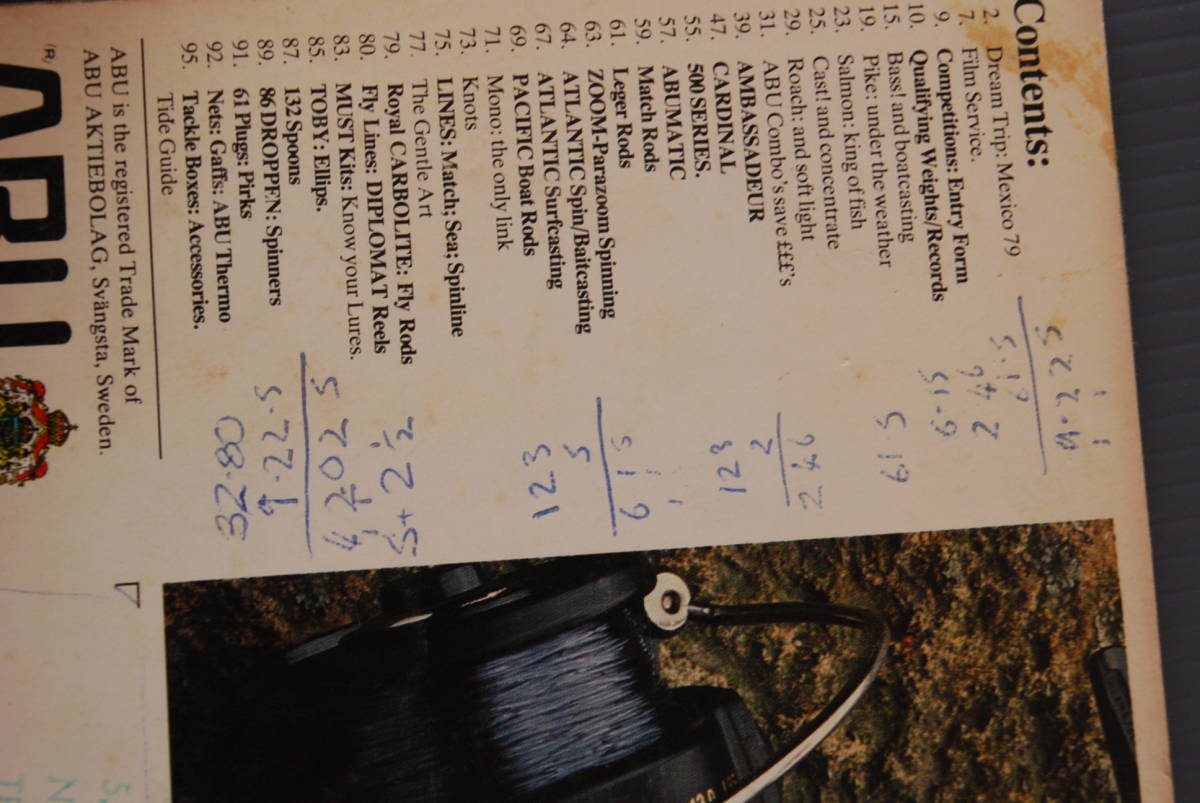 Contents:
2. Dream Trip: Mexico 79
7. Film Service.
9. Competitions: Entry Form
10. Qualifying Weights/Records
15. Bass! and boatcasting
19. Pike: under the weather
23. Salmon: king of fish
25. Cast! and concentrate
29. Roach: and soft light
31. ABU Combo's save £££'s
39. AMBASSADEUR
47. CARDINAL
55. 500 SERIES.
57. ABUMATIC
59. Match Rods
61. Leger Rods
63. ZOOM-Parazoom Spinning
64. ATLANTIC Spin/Baitcasting
67. ATLANTIC Surfcasting
69. PACIFIC Boat Rods
71. Mono: the only link
73. Knots
75. LINES: Match; Sea; Spinline
77. The Gentle Art
79. Royal CARBOLITE: Fly Rods
80. Fly Lines: DIPLOMAT Reels
83. MUST Kits: Know your Lures.
85. TOBY: Ellips.
87. 132 Spoons
89. 86 DROPPEN: Spinners
91. 61 Plugs: Pirks
92. Nets: Gaffs: ABU Thermo
95. Tackle Boxes: Accessories.
Tide Guide
ABU is the registered Trade Mark of
ABU AKTIEBOLAG, Svängsta, Sweden.
(R)
ABU
5 19
246
2
123
615
5
123
32·80